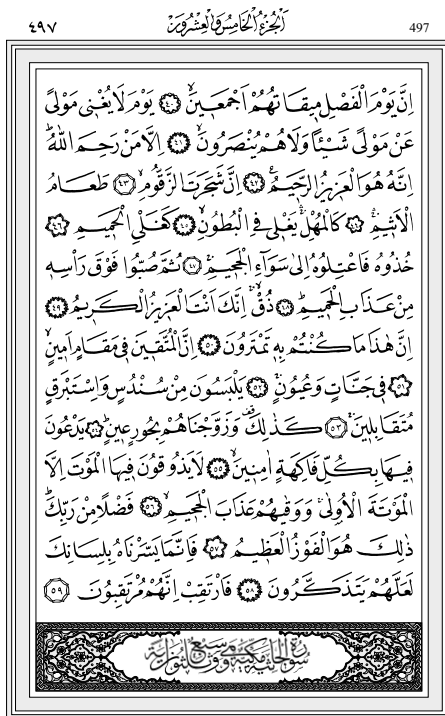 ٤٩٧ اَلْجُزْءُ الْخَامِسُ وَالْعِشْرُونَ 497
اِنَّ يَوْمَ الْفَصْلِ مٖيقَاتُهُمْ اَجْمَعٖينَۙ ﴿٤٠﴾ يَوْمَ لَا يُغْنٖي مَوْلًى
عَنْ مَوْلًى شَيْـًٔا وَلَا هُمْ يُنْصَرُونَۙ ﴿٤١﴾ اِلَّا مَنْ رَحِمَ اللّٰهُؕ
اِنَّهُ هُوَ الْعَزٖيزُ الرَّحٖيمُࣖ ﴿٤٢﴾ اِنَّ شَجَرَتَ الزَّقُّومِۙ ﴿٤٣﴾ طَعَامُ
الْاَثٖيمِۚۛ ﴿٤٤﴾ كَالْمُهْلِۚۛ يَغْلٖي فِي الْبُطُونِۙ ﴿٤٥﴾ كَغَلْيِ الْحَمٖيمِ ﴿٤٦﴾
خُذُوهُ فَاعْتِلُوهُ اِلٰى سَوَٓاءِ الْجَحٖيمِۗ ﴿٤٧﴾ ثُمَّ صُبُّوا فَوْقَ رَاْسِهٖ
مِنْ عَذَابِ الْحَمٖيمِؕ ﴿٤٨﴾ ذُقْۚ اِنَّكَ اَنْتَ الْعَزٖيزُ الْكَرٖيمُ ﴿٤٩﴾
اِنَّ هٰذَا مَا كُنْتُمْ بِهٖ تَمْتَرُونَ ﴿٥٠﴾ اِنَّ الْمُتَّقٖينَ فٖي مَقَامٍ اَمٖينٍۙ
﴿٥١﴾ فٖي جَنَّاتٍ وَعُيُونٍۚ ﴿٥٢﴾ يَلْبَسُونَ مِنْ سُنْدُسٍ وَاِسْتَبْرَقٍ
مُتَقَابِلٖينَۚ ﴿٥٣﴾ كَذٰلِكَ۠ وَزَوَّجْنَاهُمْ بِحُورٍ عٖينٍؕ ﴿٥٤﴾ يَدْعُونَ
فٖيهَا بِكُلِّ فَاكِهَةٍ اٰمِنٖينَۙ ﴿٥٥﴾ لَا يَذُوقُونَ فٖيهَا الْمَوْتَ اِلَّا
الْمَوْتَةَ الْاُو۫لٰىۚ وَوَقٰيهُمْ عَذَابَ الْجَحٖيمِۙ ﴿٥٦﴾ فَضْلًا مِنْ رَبِّكَؕ
ذٰلِكَ هُوَ الْفَوْزُ الْعَظٖيمُ ﴿٥٧﴾ فَاِنَّمَا يَسَّرْنَاهُ بِلِسَانِكَ
لَعَلَّهُمْ يَتَذَكَّرُونَ ﴿٥٨﴾ فَارْتَقِبْ اِنَّهُمْ مُرْتَقِبُونَ ﴿٥٩﴾
سُورَةُ الْجَاثِيَةِ مَكِّيَّةٌ وَهِيَ سَبْعٌ وَثَلٰثُونَ اٰيَةً